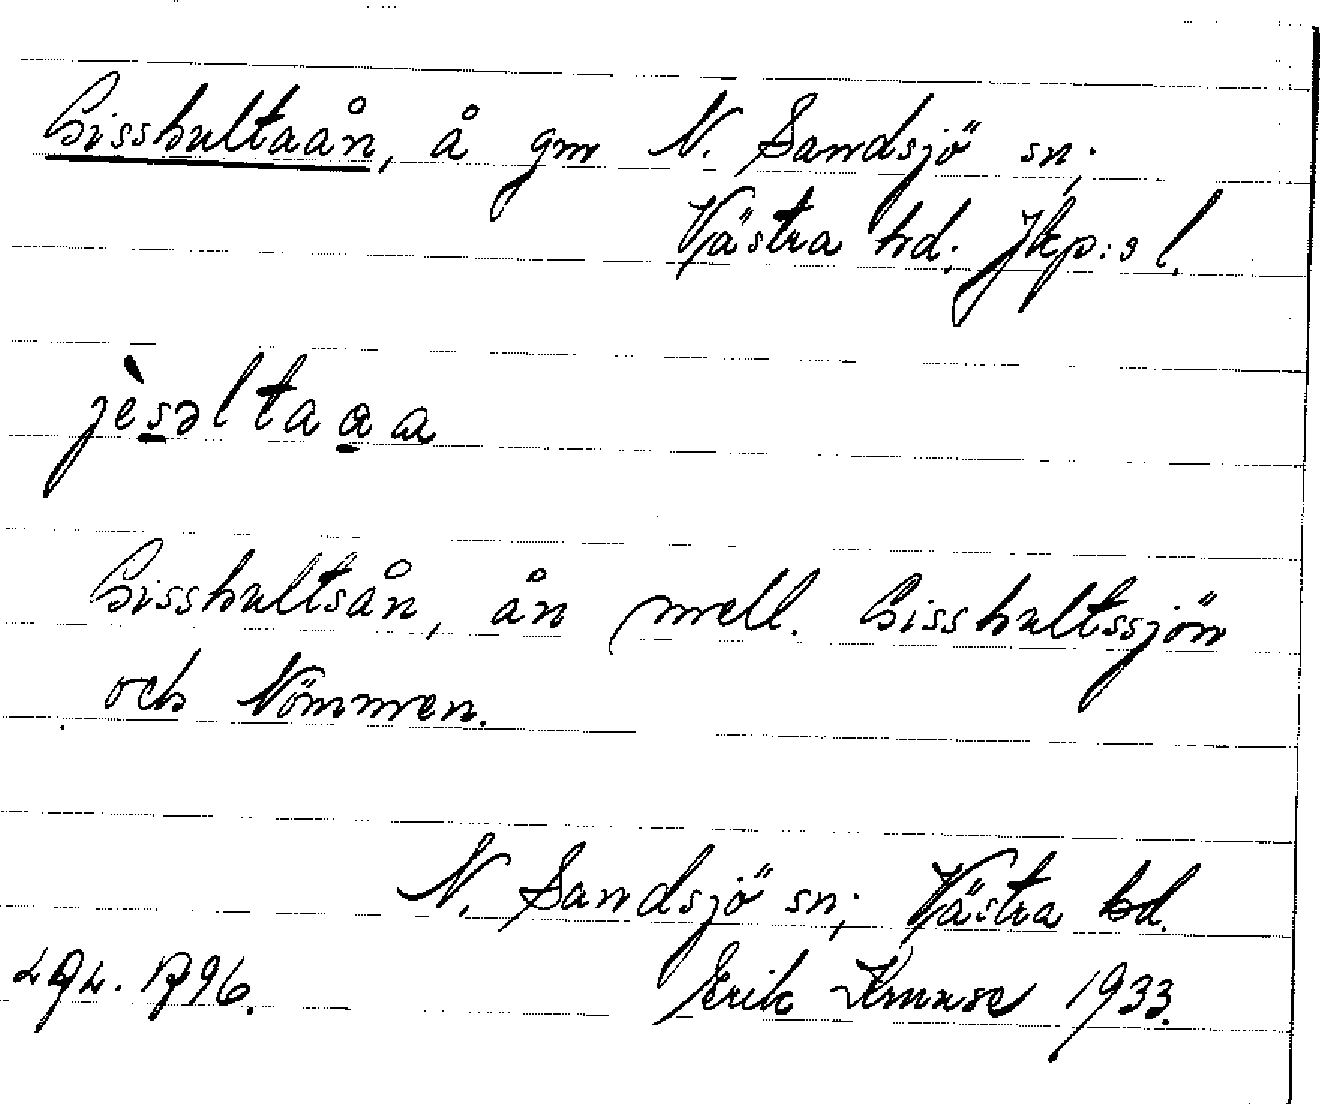 Gisshultaån, å gm N. Sandsjö sn;
Västra hd; Jkp:s l.
jèsəltaaa
Gisshultsån, ån mell. Gisshultssjön
och Nömmen.
N. Sandsjö sn; Västra hd.
Erik Kruuse 1933.